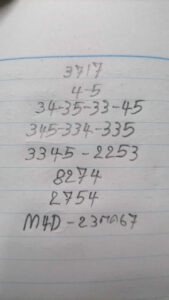 3717
4-5
34-35-33-45
345-334-335
3345-2253
8274
2754
M4D-23